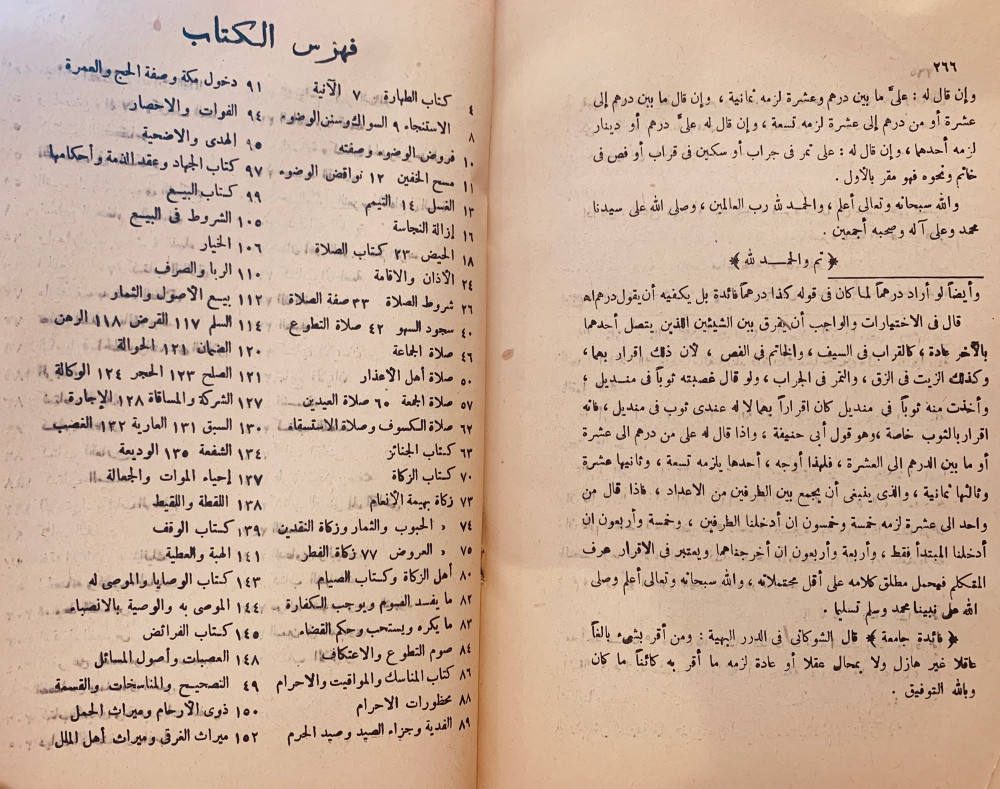 ٢٦٦
وإن قال له : علىَّ ما بين درهم وعشرة لزمه ثمانية ، وإن قال ما بين درهم إلى
عشرة أو من درهم إلى عشرة لزمه تسعة ، وإن قال له علىَّ درهم أو دينار
لزمه أحدها ، وإن قال له : على تمر فى جراب أو سكين فى قراب أو فص فى
خاتم ونحوه فهو مقر بالأول .
والله سبحانه وتعالى أعلم ، والحمد لله رب العالمين ، وصلى الله على سيدنا
محمد وعلى آله وصحبه أجمعين .
﴿ تم والحمد لله ﴾
وأيضاً لو أراد درهماً لما كان فى قوله كذا درهماً فائدة بل يكفيه أن يقول درهم اهـ
قال فى الاختيارات والواجب أن يفرق بين الشيئين اللذين يتصل أحدهما
بالآخر عادة ، كالقراب فى السيف ، والخاتم فى الفص ، لأن ذلك إقرار بهما ،
وكذلك الزيت فى الزق ، والتمر فى الجراب ، ولو قال غصبته ثوباً فى منديل ،
وأخذت منه ثوباً فى منديل كان اقراراً بهما لا له عندى ثوب فى منديل ، فانه
اقرار بالثوب خاصة ، وهو قول أبى حنيفة ، واذا قال له على من درهم الى عشرة
أو ما بين الدرهم الى العشرة ، فلهذا أوجه ، أحدها يلزمه تسعة ، وثانيها عشرة
وثالثها ثمانية ، والذى ينبغى أن يجمع بين الطرفين من الاعداد ، فاذا قال من
واحد الى عشرة لزمه خمسة وخمسون ان أدخلنا الطرفين ، وخمسة وأربعون ان
أدخلنا المبتدأ فقط ، وأربعة وأربعون ان أخرجناهما ويعتبر فى الاقرار عرف
المتكلم فيحمل مطلق كلامه على أقل محتملاته ، والله سبحانه وتعالى أعلم وصلى
الله على نبينا محمد وسلم تسليما .
﴿ فائدة جامعة ﴾ قال الشوكانى فى الدرر البهية : ومن أقر بشىء بالغاً
عاقلا غير هازل ولا بمحال عقلا أو عادة لزمه ما أقر به كائناً ما كان
وبالله التوفيق .
فهرس الكتاب
٤ كتاب الطهارة ٧ الآنية
٨ الاستنجاء ٩ السواك وسنن الوضوء
١٠ فروض الوضوء وصفته
١١ مسح الخفين ١٢ نواقض الوضوء
١٣ الغسل ١٤ التيمم
١٦ إزالة النجاسة
١٨ الحيض ٢٣ كتاب الصلاة
٢٤ الآذان والاقامة
٢٦ شروط الصلاة ٣٣ صفة الصلاة
٤٠ سجود السهو ٤٢ صلاة التطوع
٤٦ صلاة الجماعة
٥٠ صلاة أهل الاعذار
٥٧ صلاة الجمعة ٦٠ صلاة العيدين
٦٢ صلاة الكسوف وصلاة الاستسقاء
٦٣ كتاب الجنائز
٧٠ كتاب الزكاة
٧٣ زكاة بهيمة الأنعام
٧٤ « الحبوب والثمار وزكاة النقدين
٧٥ « العروض ٧٧ زكاة الفطر
٨٠ أهل الزكاة وكتاب الصيام
٨٢ ما يفسد الصوم ويوجب الكفارة
٨٣ ما يكره ويستحب وحكم القضاء
٨٤ صوم التطوع والاعتكاف
٨٦ كتاب المناسك والمواقيت والاحرام
٨٨ محظورات الاحرام
٨٩ الفدية وجزاء الصيد وصيد الحرم
٩١ دخول مكة وصفة الحج والعمرة
٩٤ الفوات والاحصار
٩٥ الهدى والاضحية
٩٧ كتاب الجهاد وعقد الذمة وأحكامها
٩٩ كتاب البيع
١٠٥ الشروط فى البيع
١٠٦ الخيار
١١٠ الربا والصرف
١١٢ بيع الأصول والثمار
١١٤ السلم ١١٧ القرض ١١٨ الرهن
١٢٠ الضمان ١٢١ الحوالة
١٢١ الصلح ١٢٣ الحجر ١٢٤ الوكالة
١٢٧ الشركة والمساقاة ١٢٨ الإجارة
١٣٠ السبق ١٣١ العارية ١٣٢ الغصب
١٣٤ الشفعة ١٣٥ الوديعة
١٣٧ إحياء الموات والجعالة
١٣٨ اللقطة واللقيط
١٣٩ كتاب الوقف
١٤١ الهبة والعطية
١٤٣ كتاب الوصايا والموصى له
١٤٤ الموصى به والوصية بالانصباء
١٤٥ كتاب الفرائض
١٤٨ العصبات وأصول المسائل
٤٩ التصحيح والمناسخات والقسمة
١٥٠ ذوى الأرحام وميراث الحمل
١٥٢ ميراث الغرقى وميراث أهل الملل